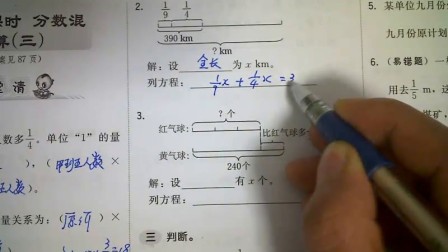 时 分数混
算(三)
见87页)
清
数多1/4,单位“1”的量
(甲班五人数)×
五人数)
量关系为:(
)×
2.
1/9 1/4
390 km
? km
解:设 全长 为 x km。
列方程: 1/9x + 1/4x = 3
3.
? 个
红气球:
比红气球多
黄气球:
240个
解:设 有 x 个。
列方程:
三 判断。
5. 某单位九月份
九月份原计划
6. (易错题)一
用去1/5 m,还